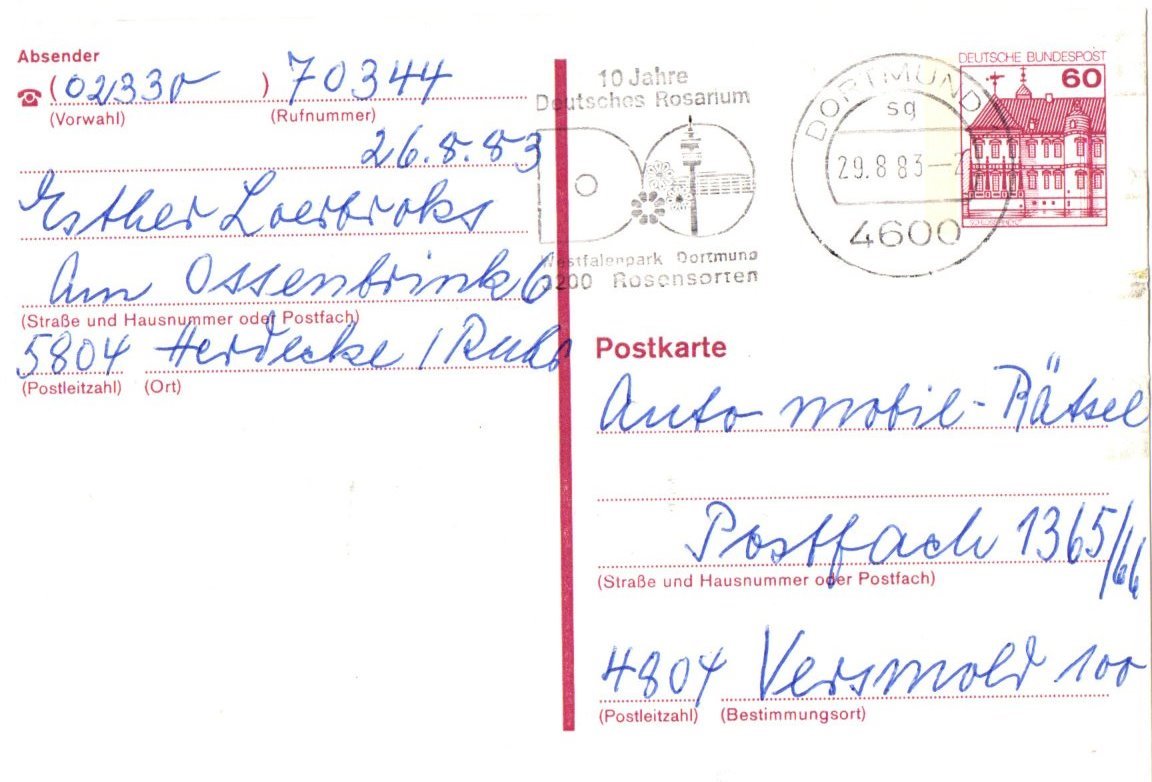 Absender
(02330) 70344
(Vorwahl) (Rufnummer)
26.8.83
Esther Loerbroks
Am Ossenbrink 6
(Straße und Hausnummer oder Postfach)
5804 Herdecke / Ruhr
(Postleitzahl) (Ort)
10 Jahre
Deutsches Rosarium
DO
Westfalenpark Dortmund
3200 Rosensorten
DORTMUND
sg
29.8.83
4600
DEUTSCHE BUNDESPOST
60
Postkarte
Automobil-Rätsel
Postfach 1365/66
(Straße und Hausnummer oder Postfach)
4804 Versmold 100
(Postleitzahl) (Bestimmungsort)